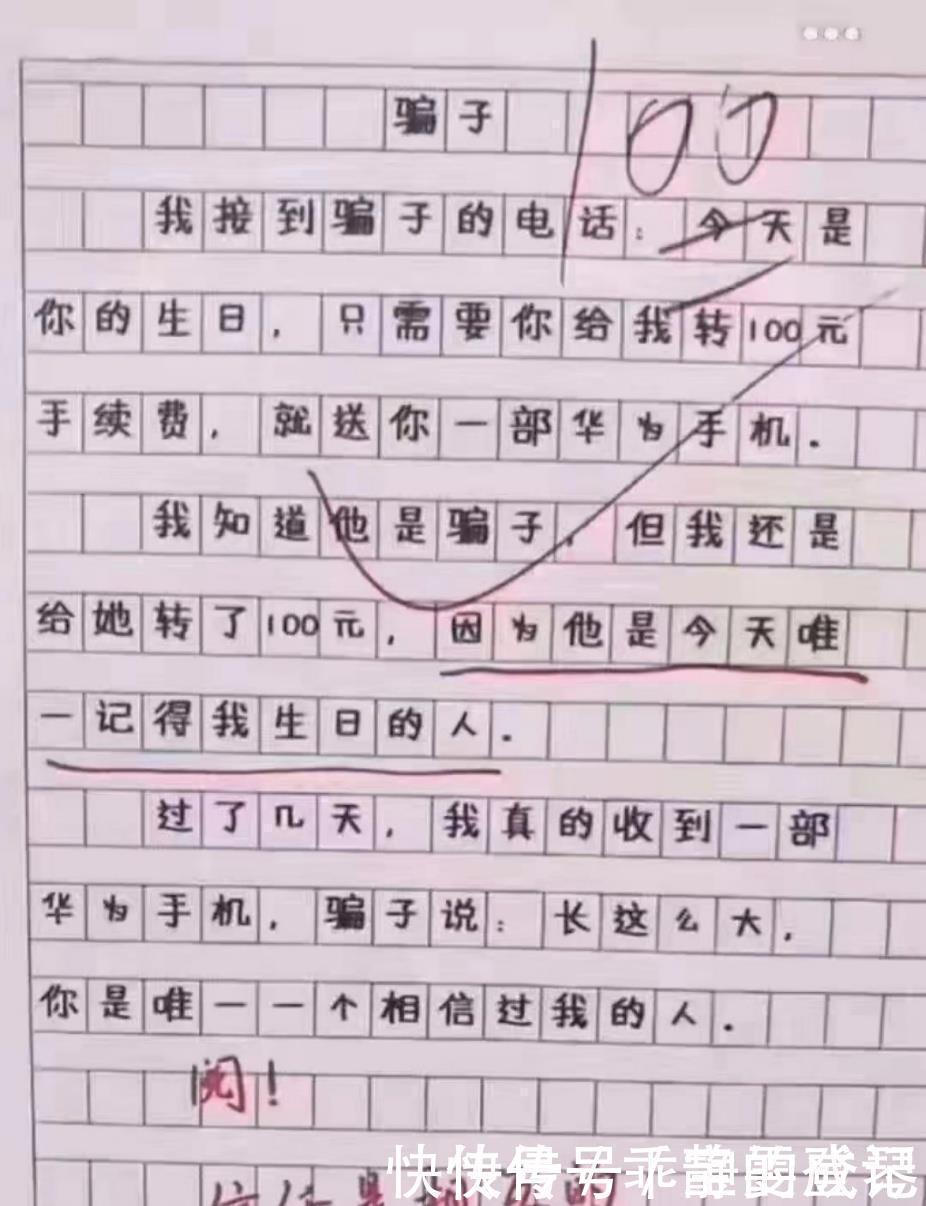 骗子
100
我接到骗子的电话：今天是
你的生日，只需要你给我转100元
手续费，就送你一部华为手机．
我知道他是骗子，但我还是
给她转了100元，因为他是今天唯
一记得我生日的人．
过了几天，我真的收到一部
华为手机，骗子说：长这么大，
你是唯一一个相信过我的人．
阅！